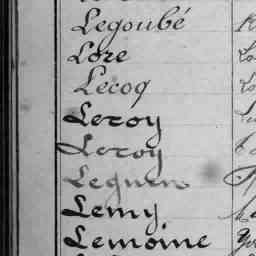 Legoubé
Lore
Lecoq
Leroy
Leroy
Leguen
Lemy
Lemoine